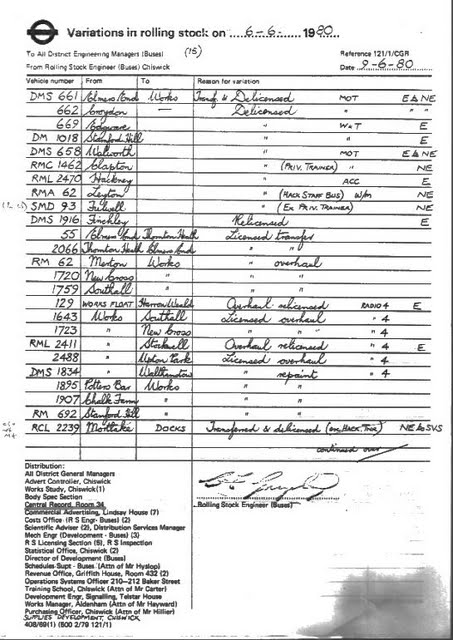 Variations in rolling stock on 6-6- 1980
(15)
To All District Engineering Managers (Buses) Reference 121/1/CGR
From Rolling Stock Engineer (Buses) Chiswick Date 9-6-80
Vehicle number From To Reason for variation
DMS 661 Elmers End Works Transf. & Delicensed MOT E & NE
662 Croydon " Delicensed " " "
669 Edgware " WAT E
DM 1018 Stamford Hill " " E
DMS 658 Walworth " MOT E & NE
RMC 1462 Clapton " (PRIV. TRAINER) NE
RML 2470 Hackney " ACC E
RMA 62 Leyton " (HACK STAFF BUS) W/m NE
SMD 93 Fulwell " (Ex PRIV. TRAINER) NE
DMS 1916 Finchley Relicensed E
55 Elmers End Thornton Heath Licensed transfer
2066 Thornton Heath Elmers End "
RM 62 Merton Works " overhaul
1720 New Cross " " "
1759 Southall " " "
129 WORKS FLOAT Harrow Weald Overhaul relicensed RADIO 4 E
1643 Works Southall Licensed overhaul " 4
1723 " New Cross " " " 4
RML 2411 " Stockwell Overhaul relicensed " 4 E
2488 " Upton Park Licensed overhaul " 4
DMS 1834 " Walthamstow " repaint " 4
1895 Potters Bar Works "
1907 Chalk Farm " "
RM 692 Stamford Hill " "
RCL 2239 Mortlake DOCKS Transferred & delicensed NE to SVS
continued over
Distribution:
All District General Managers
Advert Controller, Chiswick
Works Study, Chiswick(1)
Body Spec Section
Central Record, Room 34
Commercial Advertising, Lindsay House (7) Rolling Stock Engineer (Buses)
Costs Office (R S Engr- Buses) (2)
Scientific Adviser (2), Distribution Services Manager
Mech Engr (Development - Buses) (3)
R S Licensing Section (5), R S Inspection
Statistical Office, Chiswick (2)
Director of Development (Buses)
Schedules-Supt - Buses (Attn of Mr Hyslop)
Revenue Office, Griffith House, Room 432 (2)
Operations Systems Officer 210-212 Baker Street
Training School, Chiswick (Attn of Mr Carter)
Development Engr, Signalling, Telstar House
Works Manager, Aldenham (Attn of Mr Hayward)
Purchasing Officer, Chiswick (Attn of Mr Hillier)
SUPPLIES DEVELOPMENT, CHISWICK
408/69(1) (500 2/79 121/1)